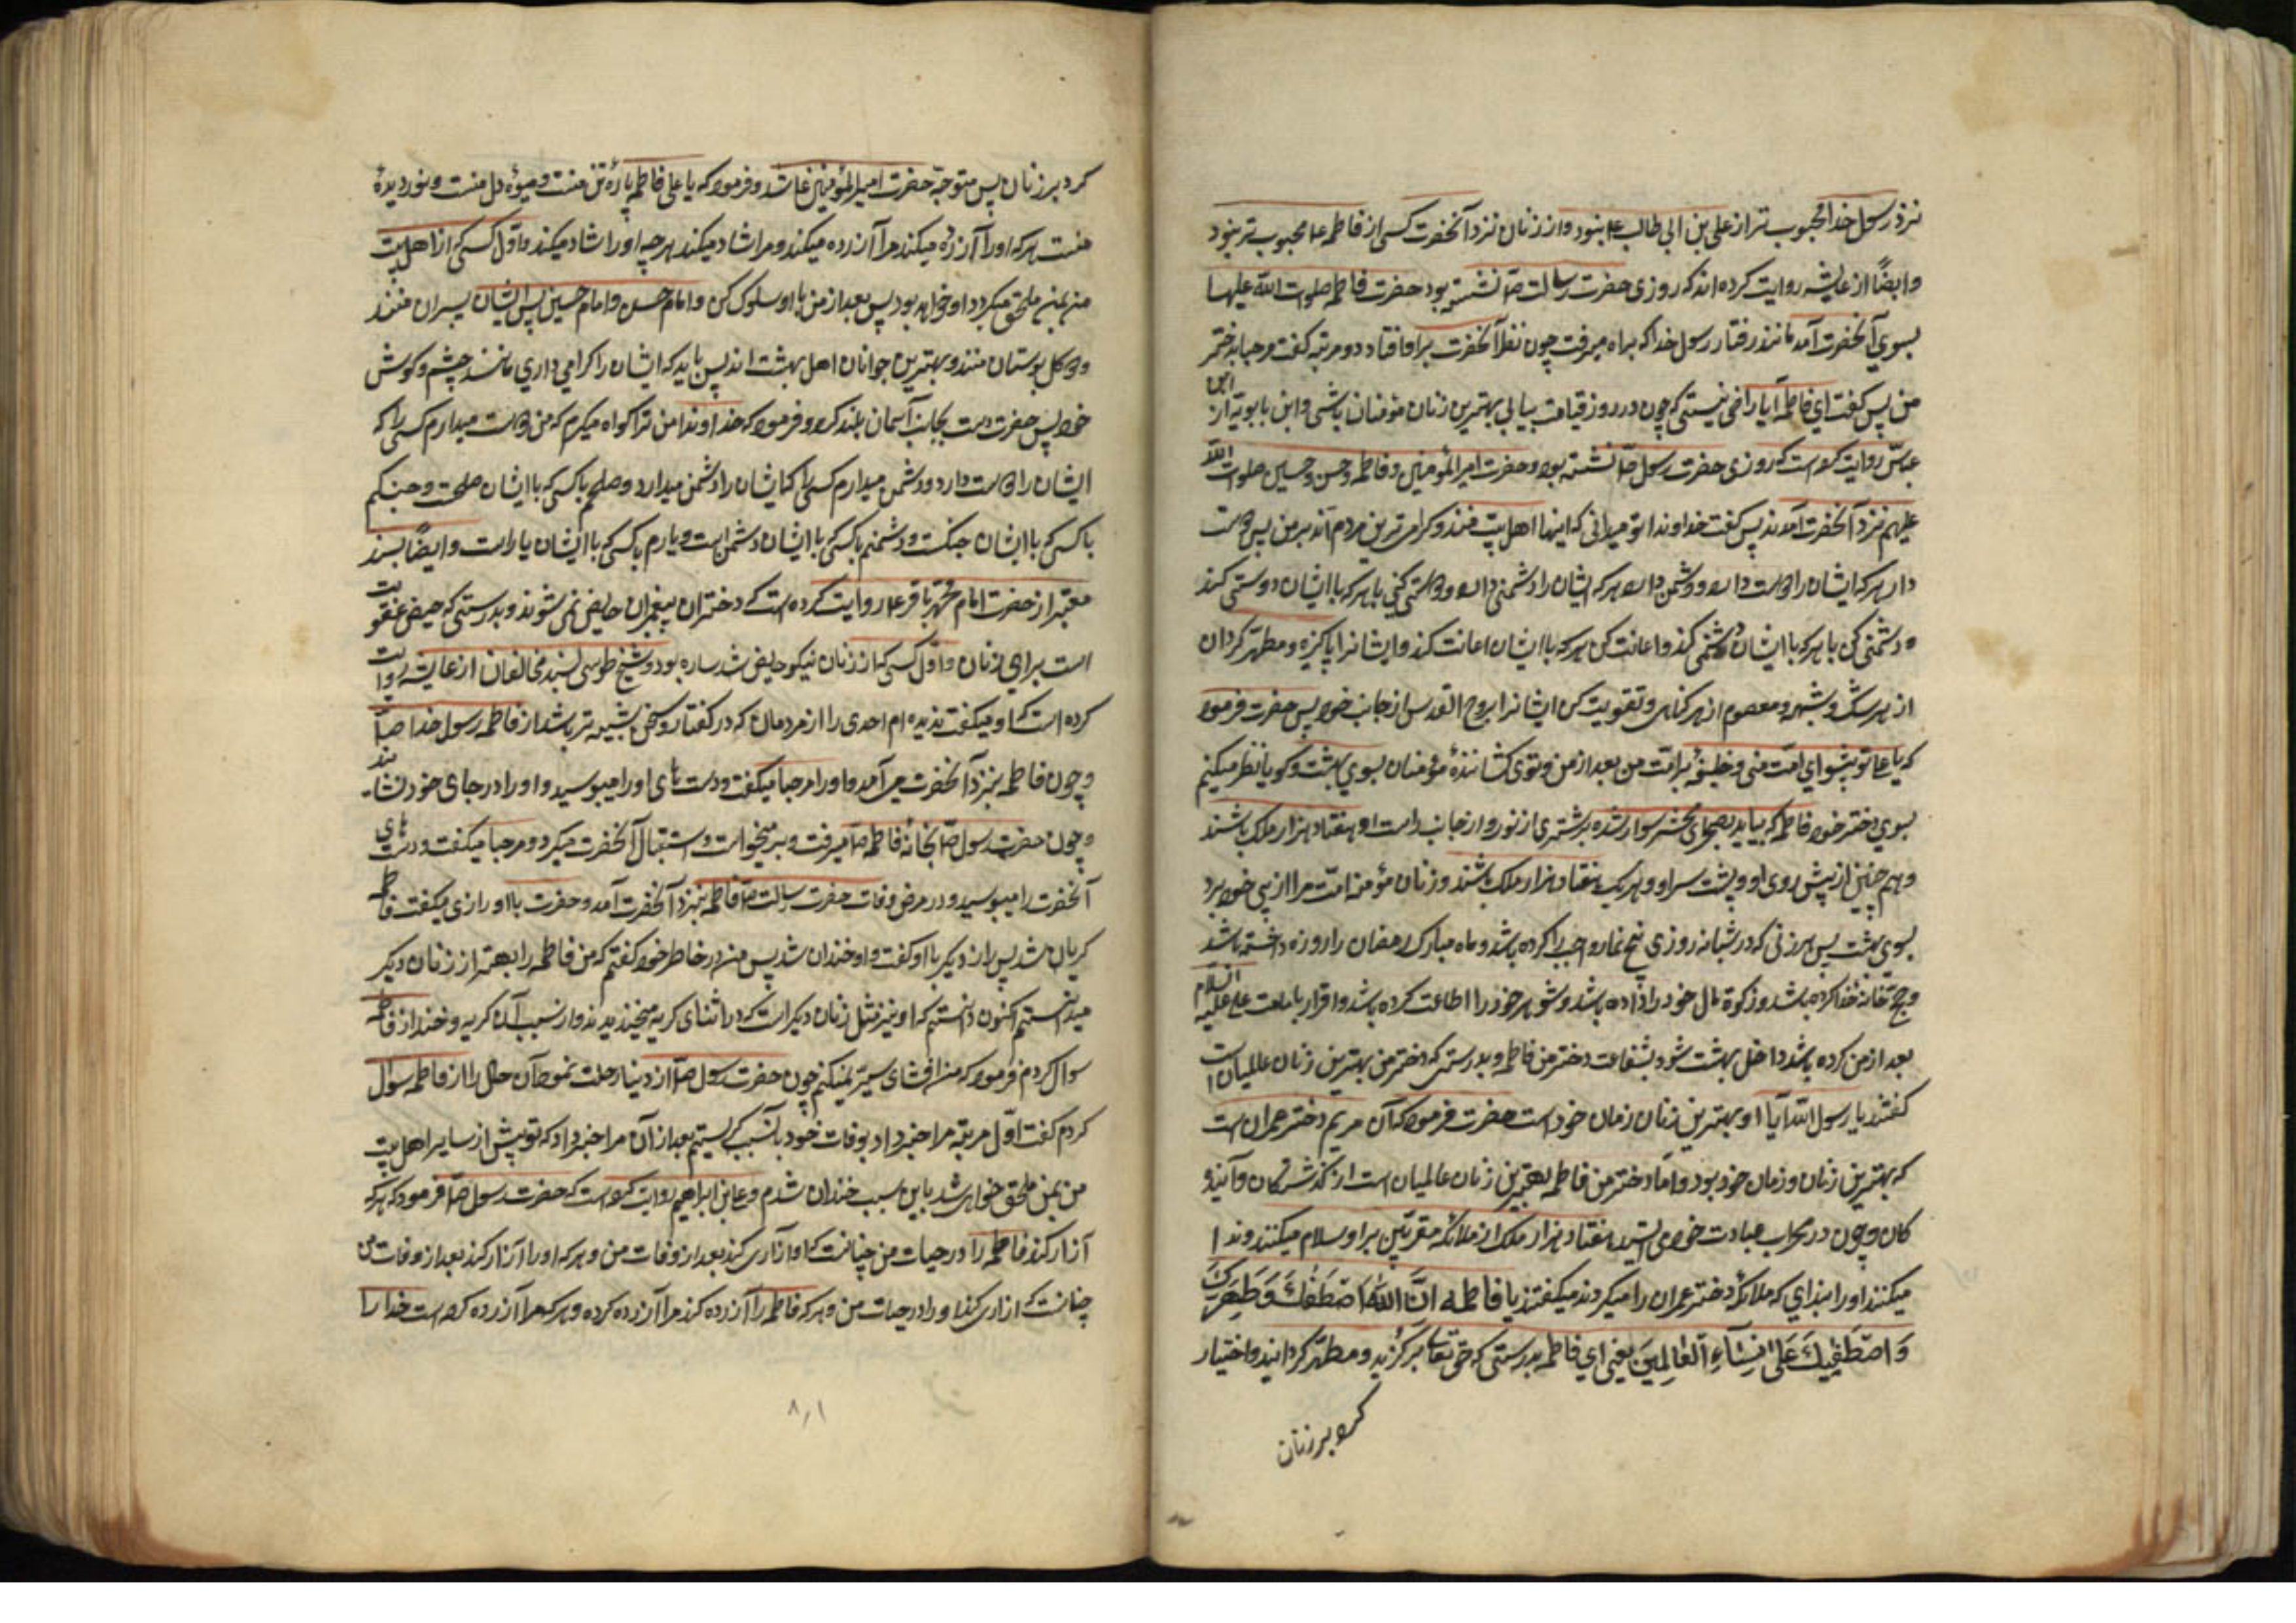 نزد رسول خدا محبوب تر از علی بن ابی طالب ع نبود و از زنان نزد آنحضرت کسی از فاطمه ع محبوب تر نبود
و ایضاً از عایشه روایت کرده اند که روزی حضرت رسالت ص نشسته بود حضرت فاطمه صلوات الله علیها
بسوی آنحضرت آمد مانند رفتار رسول خدا که براه میرفت چون نظر آنحضرت بر او افتاد دو مرتبه گفت مرحبا بدختر
من پس گفت ای فاطمه آیا راضی نیستی که چون در روز قیامت بیایی بهترین زنان مؤمنان باشی و ابن بابویه از ابن
عباس روایت کرده است که روزی حضرت رسول ص نشسته بود و حضرت امیرالمؤمنین و فاطمه و حسن و حسین صلوات الله
علیهم نزد آنحضرت آمدند پس گفت خداوندا تو میدانی که اینها اهل بیت منند و گرامی ترین مردم اند بر من پس دوست
دار هر که ایشان را دوست دارد و دشمن دار هر که ایشان را دشمنی دارد و دوستی کن با هر که با ایشان دوستی کند
و دشمنی کن با هر که با ایشان دشمنی کند و اعانت کن هر که با ایشان اعانت کند و ایشانرا پاکیزه و مطهر گردان
از هر شک و شبهه و معصوم از هر گناهی و تقویت کن ایشانرا بروح القدس از جانب خود پس حضرت فرمود
که یا علی تو پیشوای امت منی و خلیفه بر امت من بعد از من و توی کشاننده مؤمنان بسوی بهشت و گویا نظر میکنم
بسوی دختر خود فاطمه که بیاید بصحرای محشر سوار شده بر شتری از نور و از جانب راست او هفتاد هزار ملک باشند
و هم چنین از پیش روی او و پشت سر او و هر یک هفتاد هزار ملک باشند و زنان مؤمنه امت مرا از پی خود برد
بسوی بهشت پس هر زنی که در شبانه روزی پنج نماز واجب را کرده باشد و ماه مبارک رمضان را روزه داشته باشد
و حج خانه خدا کرده باشد و زکوة مال خود را داده باشد و شوهر خود را اطاعت کرده باشد و اقرار بامامت علی علیه السلام
بعد از من کرده باشد داخل بهشت شود بشفاعت دختر من فاطمه و بدرستی که دختر من بهترین زنان عالمیان است
گفتند یا رسول الله آیا او بهترین زنان زمان خود است حضرت فرمود که آن مریم دختر عمران است
که بهترین زنان و زمان خود بود و اما دختر من فاطمه بهترین زنان عالمیان است از گذشتگان و آیند
کان و چون در محراب عبادت خود می ایستد هفتاد هزار ملک از ملائکه مقربین بر او سلام میکنند و ندا
میکنند او را بندای که ملائکه دختر عمران را میکردند میگفتند یا فاطمه انَّ اللهَ اصْطَفٰكِ وَ طَهَّرَكِ
وَ اصْطَفٰیكِ عَلیٰ نِسَآءِ الْعٰالَمِینَ یعنی ای فاطمه بدرستی که حق تعالی برگزید و مطهر گردانید و اختیار
کرد بر زنان
کرد بر زنان پس متوجه حضرت امیرالمؤمنین ع شد و فرمود که یا علی فاطمه پاره تن منست و میوه دل منست و نور دیده
منست هر که او را آزرده میکند مرا آزرده میکند و مرا شاد میکند هر چه او را شاد میکند و اول کسی که از اهل بیت
من بمن ملحق میگردد او خواهد بود پس بعد از من با او سلوک کن و امام حسن و امام حسین پس ایشان پسران منند
و دو گل بوستان منند و بهترین جوانان اهل بهشت اند پس باید که ایشان را گرامی داری مانند چشم و گوش
خود پس حضرت دست بجانب آسمان بلند کرد و فرمود که خداوندا من ترا گواه میگیرم که من دوست میدارم کسی را که
ایشان را دوست دارد و دشمن میدارم کسی را که ایشان را دشمن میدارد و صلحم با کسی که با ایشان صلحست و جنگم
با کسی که با ایشان جنگست و دشمنم با کسی که با ایشان دشمن است و یارم با کسی که با ایشان یار است و ایضاً بسند
معتبر از حضرت امام محمد باقر ع روایت کرده است که دختران پیغمبران حایض نمی شوند و بدرستی که حیض عقوبت
است برای زنان و اول کسی که از زنان نیکو حایض شد ساره بود و شیخ طوسی بسند مخالفان از عایشه روایت
کرده است که او میگفت ندیده ام احدی را از مردمان که در گفتار و سخن شبیه تر باشد از فاطمه رسول خدا ص
و چون فاطمه بنزد آنحضرت می آمد و او را مرحبا میگفت و دست های او را میبوسید و او را در جای خود نشا-ند
و چون حضرت رسول ص بخانه فاطمه ص میرفت و بر میخواست و استقبال آنحضرت میکرد و مرحبا میگفت و دست های
آنحضرت را میبوسید و در مرض وفات حضرت رسالت ص فاطمه بنزد آنحضرت آمد و حضرت با او رازی میگفت فاطمه
گریان شد پس راز دیگر با او گفت و او خندان شد پس من در خاطر خود گفتم که من فاطمه را بهتر از زنان دیگر
میدانستم اکنون دانستم که او نیز مثل زنان دیگر است که در اثنای گریه میخندید و از سبب آن گریه و خنده از فاطمه
سوال کردم فرمود که من افشای سرّ نمیکنم چون حضرت رسول ص از دنیا رحلت نمود آن حال را از فاطمه سوال
کردم گفت اول مرتبه مرا خبر داد بوفات خود باین سبب گریستم بعد از آن مرا خبر داد که تو پیش از سایر اهل بیت
من بمن ملحق خواهی شد باین سبب خندان شدم و علی بن ابراهیم روایت کرده است که حضرت رسول ص فرمود که هر که
آزار کند فاطمه را در حیات من چنانست که او را آزاری کند بعد از وفات من و هر که او را آزار کند بعد از وفات من
چنانست که ازاری کند او را در حیات من و هر که فاطمه را آزرده کند مرا آزرده کرده و هر که مرا آزرده کرده است خدا را
۸۰۱